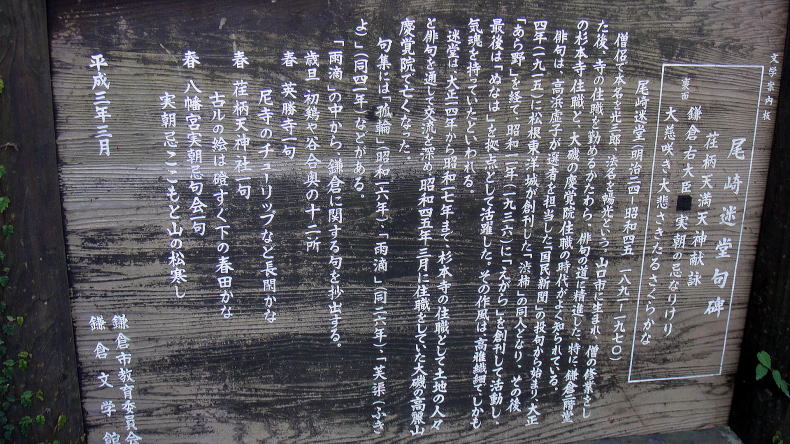 文学案内板
尾崎迷堂句碑
荏柄天満天神献詠
鎌倉右大臣
実朝の忌なりけり
裏面
大慈咲き大悲さきたるさくらかな
尾崎迷堂(明治二四~昭和四五 一八九一~一九七〇)
僧侶で本名を光三郎、法名を暢光という。山口市に生まれ、僧の修業をし
た後、寺の住職を勤めるかたわら、俳句の道に精進した。特に、鎌倉二階堂
の杉本寺住職と、大磯の慶覚院住職の時代がよく知られている。
俳句は、高浜虚子が選者を担当した「国民新聞」の投句から始まり、大正
四年(一九一五)に松根東洋城が創刊した「渋柿」の同人となり、その後
「あら野」を経て、昭和一一年(一九三六)に「えがら」を創刊して活動し、
最後は「ぬなは」を拠点として活躍した。その作風は、高雅繊細で、しかも
気魂を持っていたといわれる。
迷堂は、大正一四年から昭和一七年まで、杉本寺の住職として土地の人々
と俳句を通して交流を深め、昭和四五年三月に住職をしていた大磯の高麗山
慶覚院で亡くなった。
句集には、「孤輪」(昭和一六年)、「雨滴」(同二六年)、「芙渠(ふき
よ)」(同四一年)などがある。
「雨滴」の中から、鎌倉に関する句を抄出する。
歳旦 初鶏や谷合奥の十二所
春 英勝寺一句
尼寺のチューリップなど長閑かな
春 荏柄天神社一句
古ルの絵は碕すく下の春田かな
春 八幡宮実朝忌句会一句
実朝忌ここもと山の松寒し
平成三年三月
鎌倉市教育委員会
鎌倉文学館